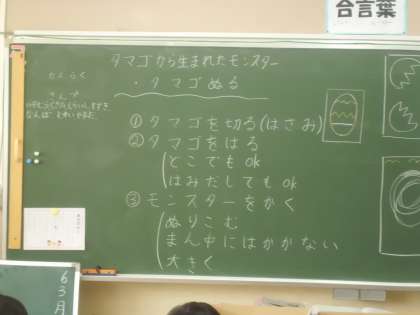 合言葉
タマゴから生まれたモンスター
・タマゴぬる
①タマゴを切る(はさみ)
②タマゴをはる
どこでもok
はみだしてもok
③モンスターをかく
ぬりこむ
まん中にはかかない
大きく
6
3月